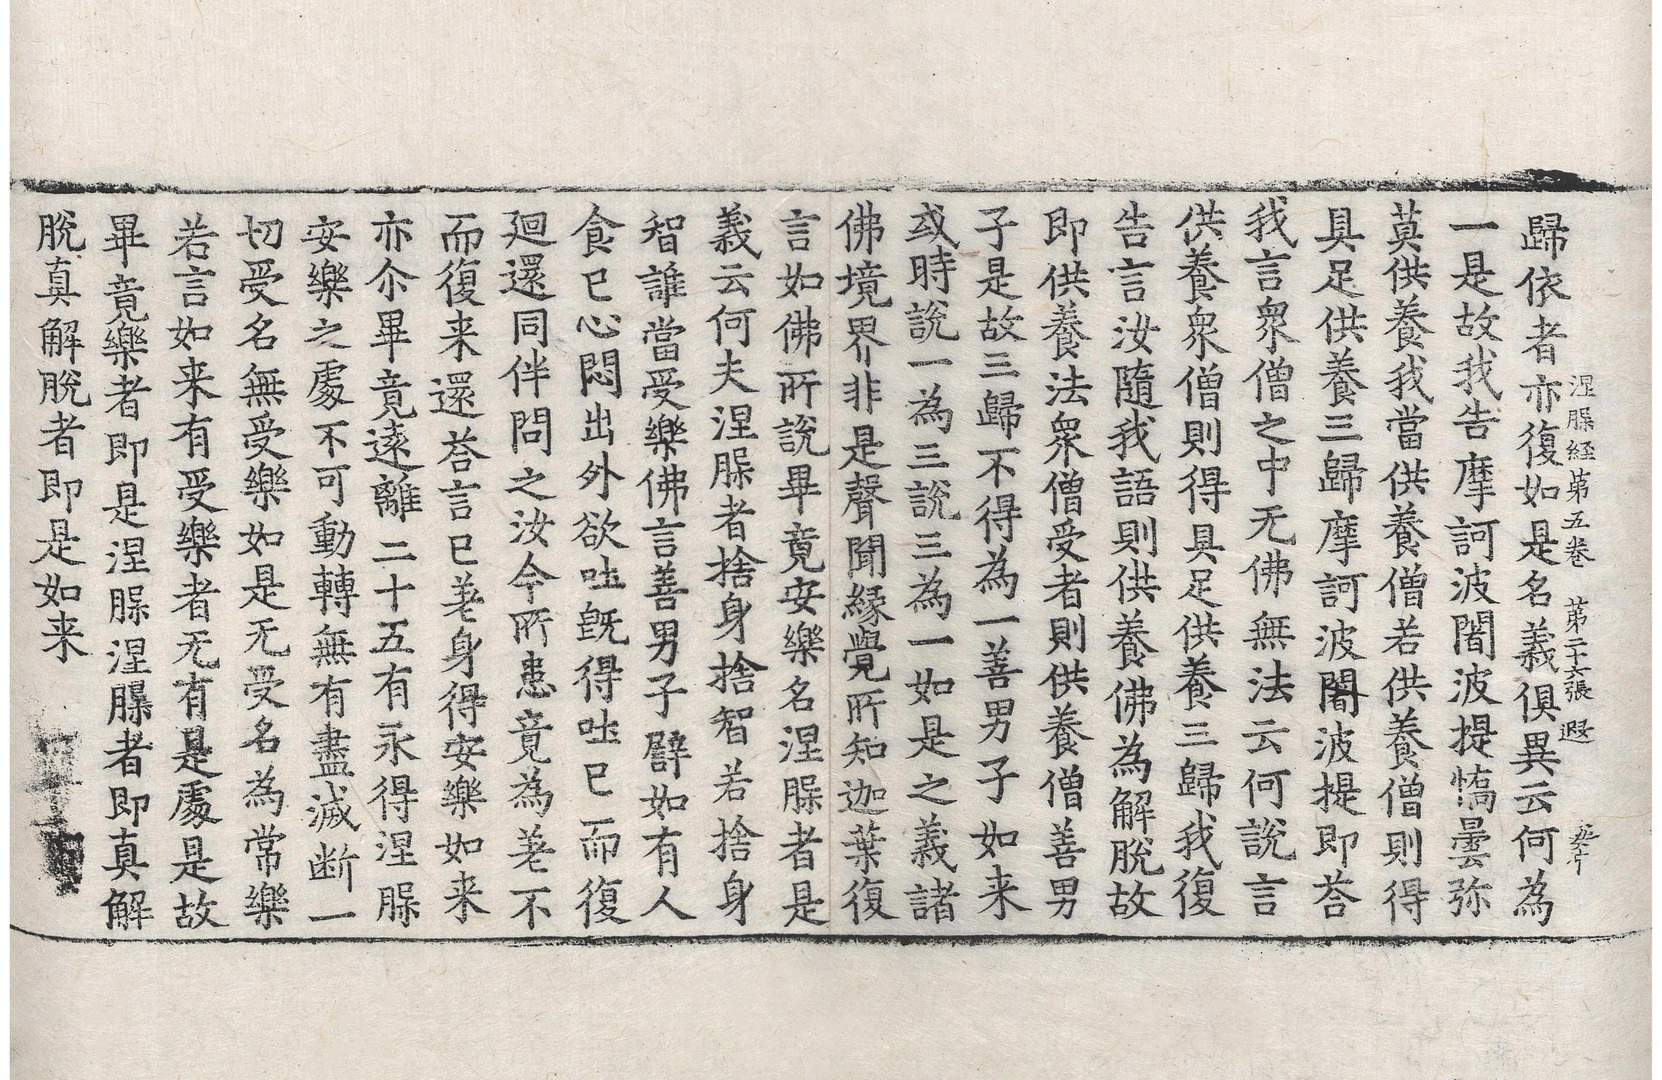 歸依者亦復如是名義俱異云何為
涅槃経苐五卷 苐二十六張 遐
一是故我告摩訶波闍波提憍曇弥
莫供養我當供養僧若供養僧則得
具足供養三歸摩訶波闍波提即荅
我言衆僧之中无佛無法云何說言
供養衆僧則得具足供養三歸我復
告言汝隨我語則供養佛為解脫故
即供養法衆僧受者則供養僧善男
子是故三歸不得為一善男子如来
或時說一為三說三為一如是之義諸
佛境界非是聲聞緣覺所知迦葉復
言如佛所說畢竟安樂名涅槃者是
義云何夫涅槃者捨身捨智若捨身
智誰當受樂佛言善男子譬如有人
食已心悶出外欲吐旣得吐已而復
廻還同伴問之汝今所患竟為差不
而復来還荅言已差身得安樂如来
亦尒畢竟遠離二十五有永得涅槃
安樂之處不可動轉無有盡滅断一
切受名無受樂如是无受名為常樂
若言如来有受樂者无有是處是故
畢竟樂者即是涅槃涅槃者即真解
脫真解脫者即是如来